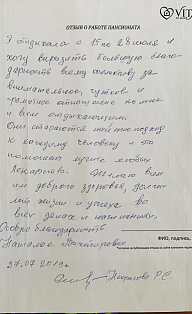 VIT
ОТЗЫВ О РАБОТЕ ПАНСИОНАТА
Я отдыхала с 15 по 28 июля и
хочу выразить большую благо-
дарность всему коллективу за
внимательное, чуткое и
грамотное отношение ко мне
и всем отдыхающим.
Они стараются найти подход
к каждому человеку и это
помогает лучше любого
лекарства. Желаю Вам
им доброго здоровья, долгих
лет жизни и успеха во
всех делах и начинаниях.
Особую благодарность
Наталье Викторовне
ФИО, подпись.
27.07.2019г.
Некрасова Р.С.